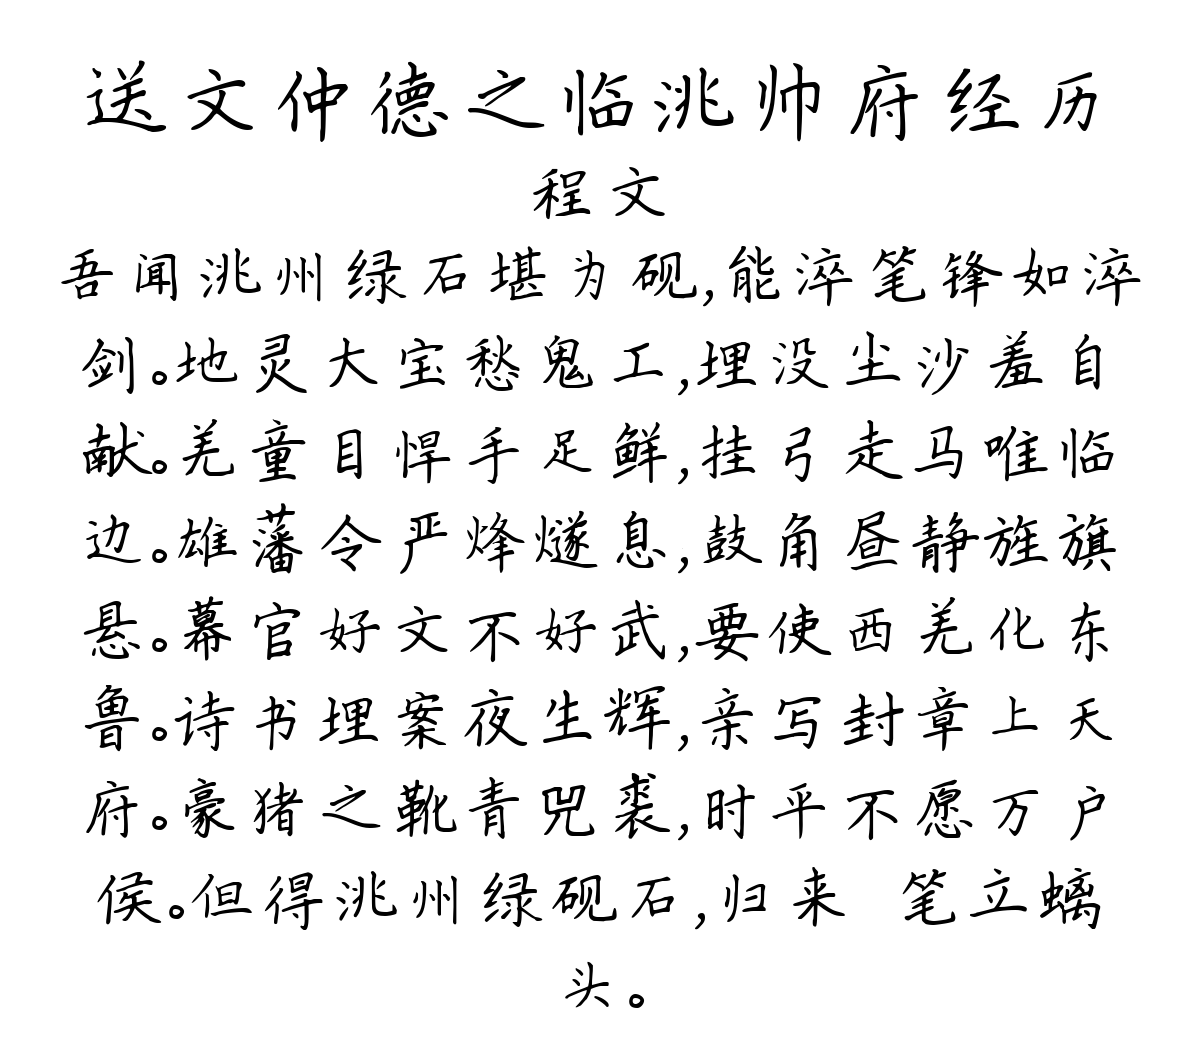 送文仲德之临洮帅府经历
程文
吾闻洮州绿石堪为砚,能淬笔锋如淬
剑。地灵大宝愁鬼工,埋没尘沙羞自
献。羌童目悍手足鲜,挂弓走马唯临
边。雄藩令严烽燧息,鼓角昼静旌旗
悬。幕官好文不好武,要使西羌化东
鲁。诗书埋案夜生辉,亲写封章上天
府。豪猪之靴青兕裘,时平不愿万户
侯。但得洮州绿砚石,归来 笔立螭
头。